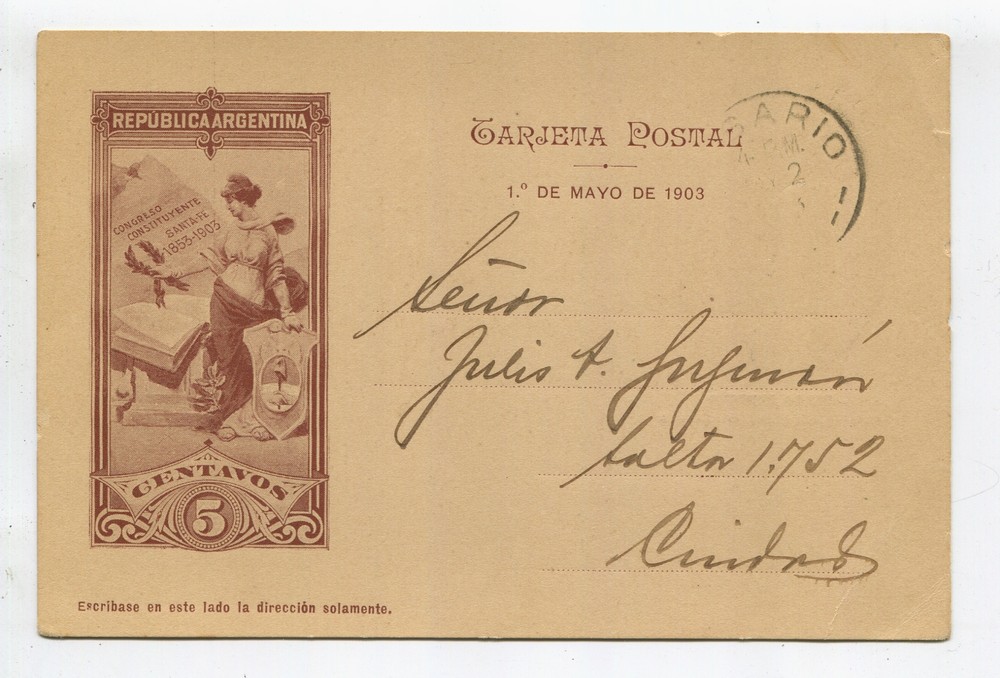 REPÚBLICA ARGENTINA
CONGRESO
CONSTITUYENTE
SANTA-FE
1853-1903
CENTAVOS
5
TARJETA POSTAL
1.º DE MAYO DE 1903
SARIO
P.M.
2
Señor
Julio A.
Salta 1.752
Ciudad
Escribase en este lado la dirección solamente.